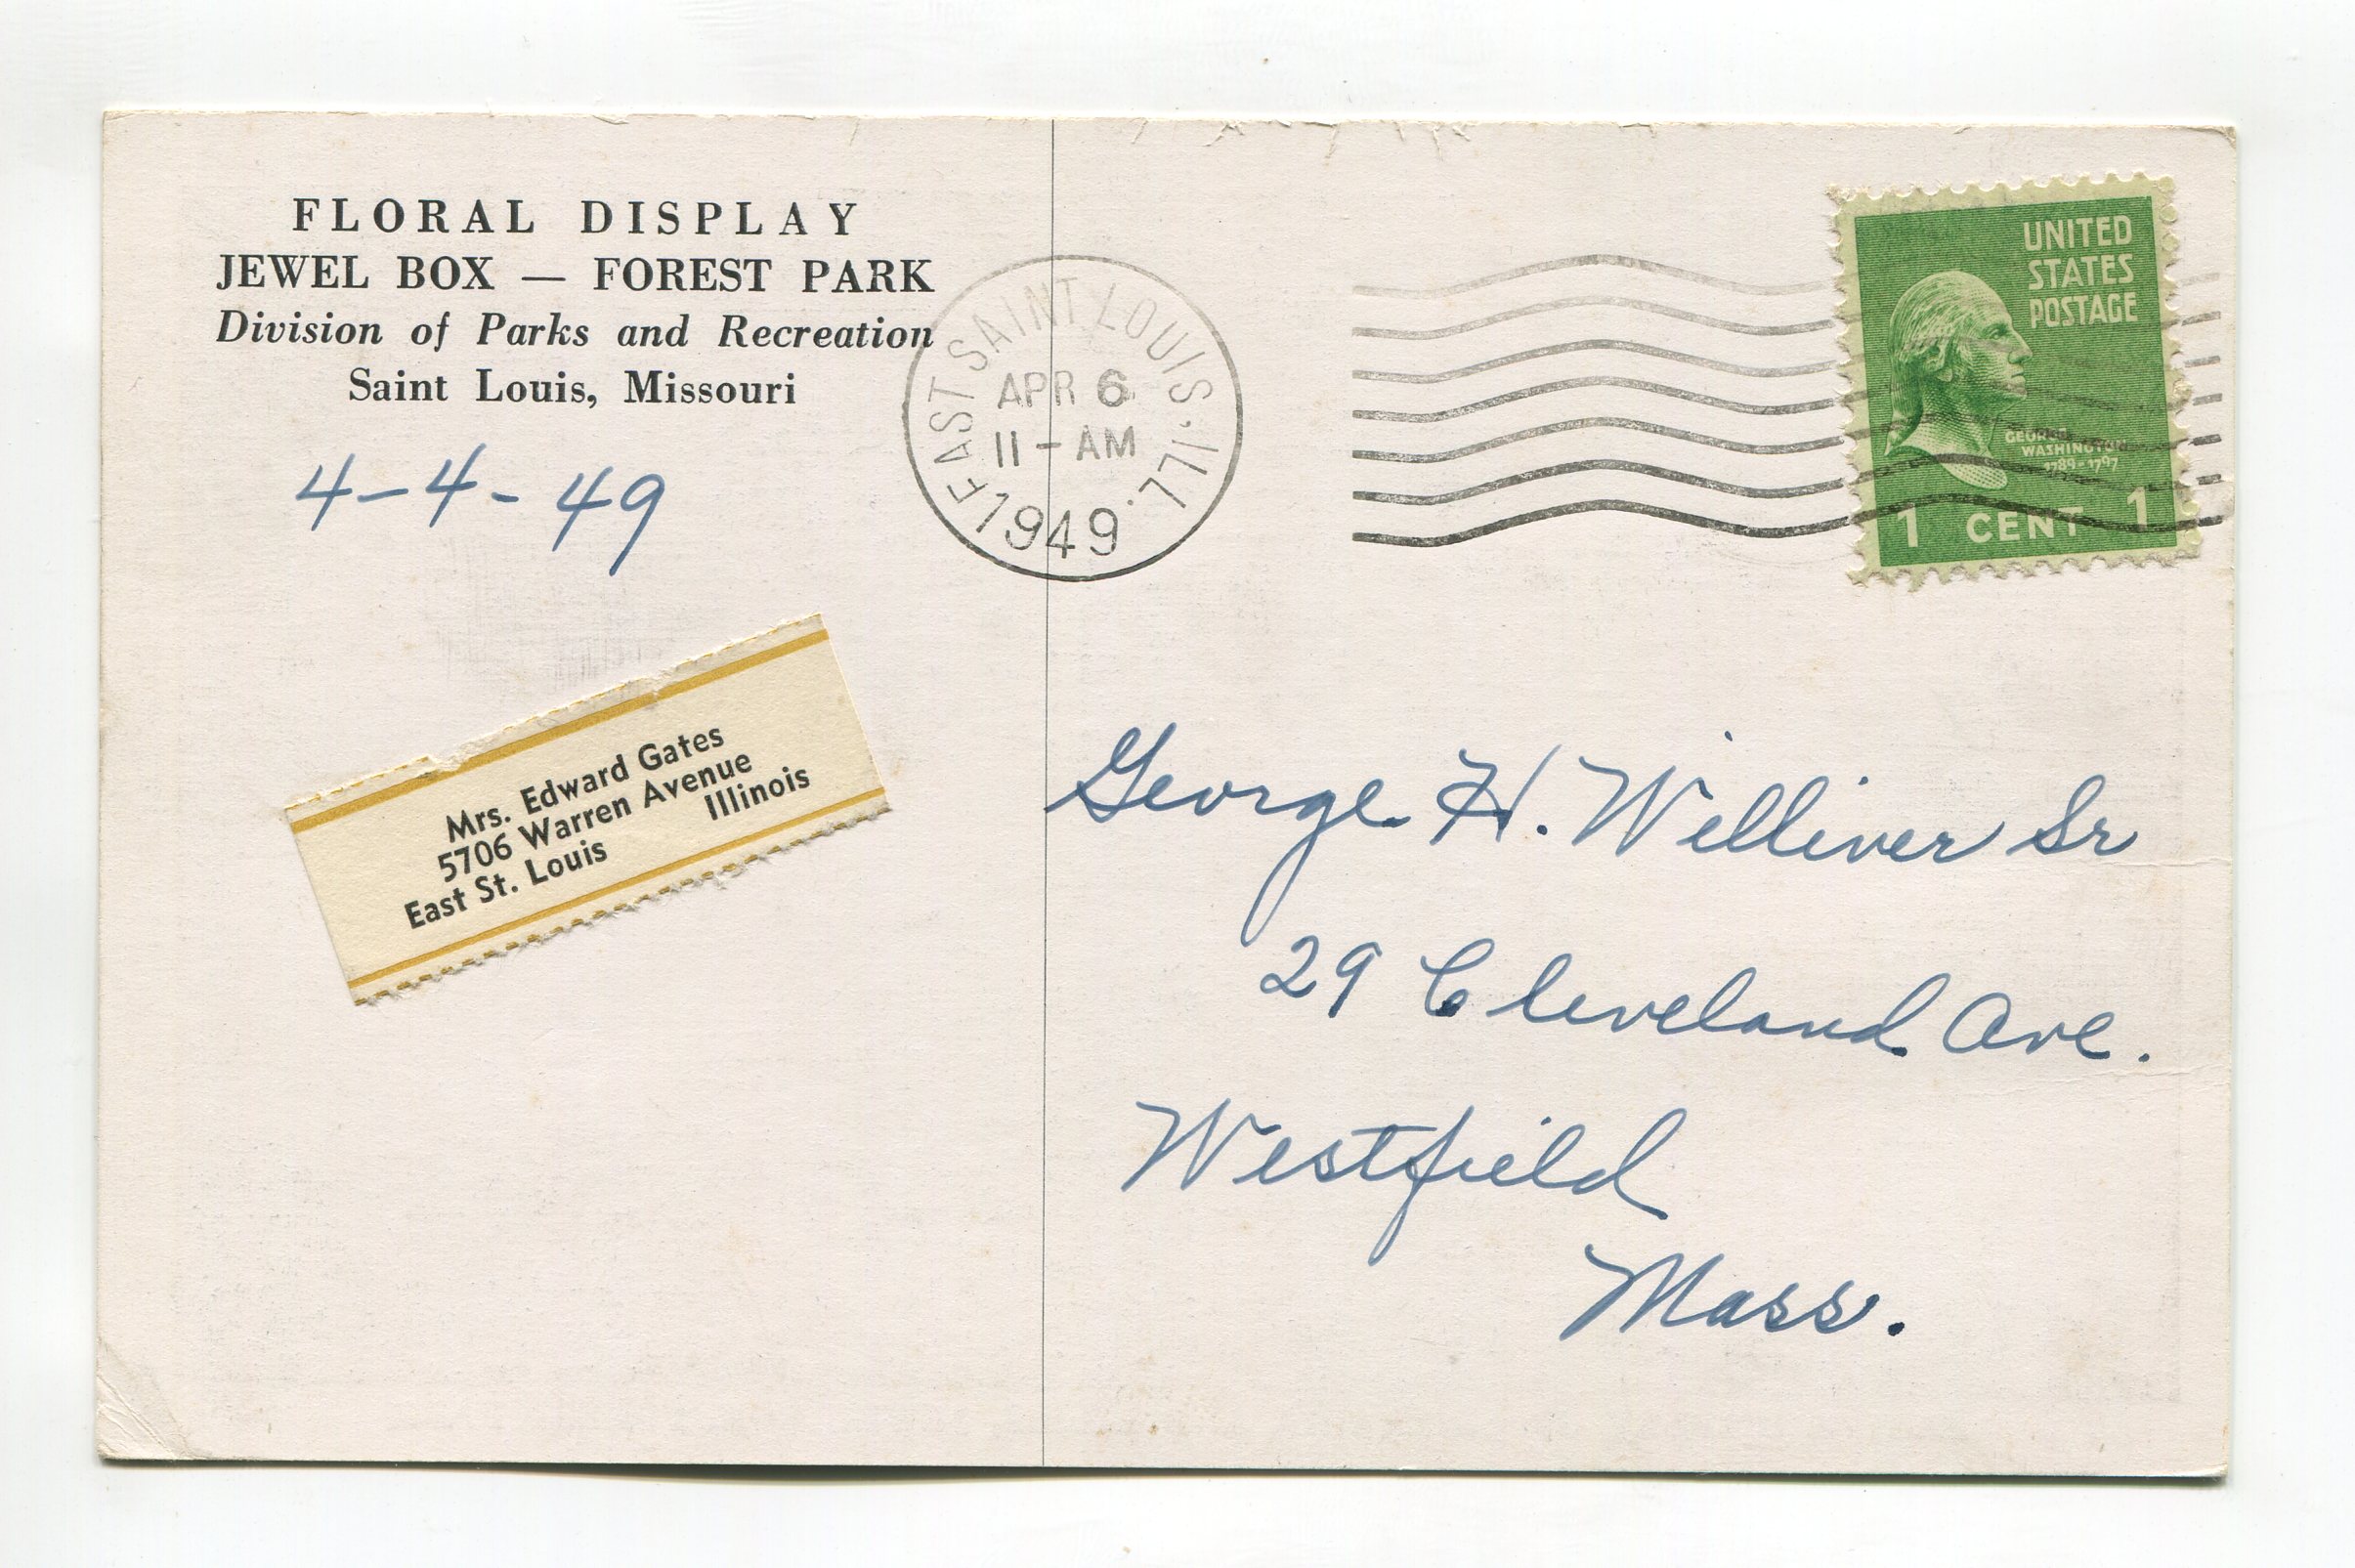 FLORAL DISPLAY
JEWEL BOX — FOREST PARK
Division of Parks and Recreation
Saint Louis, Missouri
4-4-49
EAST SAINT LOUIS. ILL.
APR 6
11-AM
1949
UNITED
STATES
POSTAGE
GEORGE
WASHINGTON
1789-1797
1 CENT 1
Mrs. Edward Gates
5706 Warren Avenue
East St. Louis Illinois
George H. Welliver Sr
29 Cleveland Ave.
Westfield
Mass.